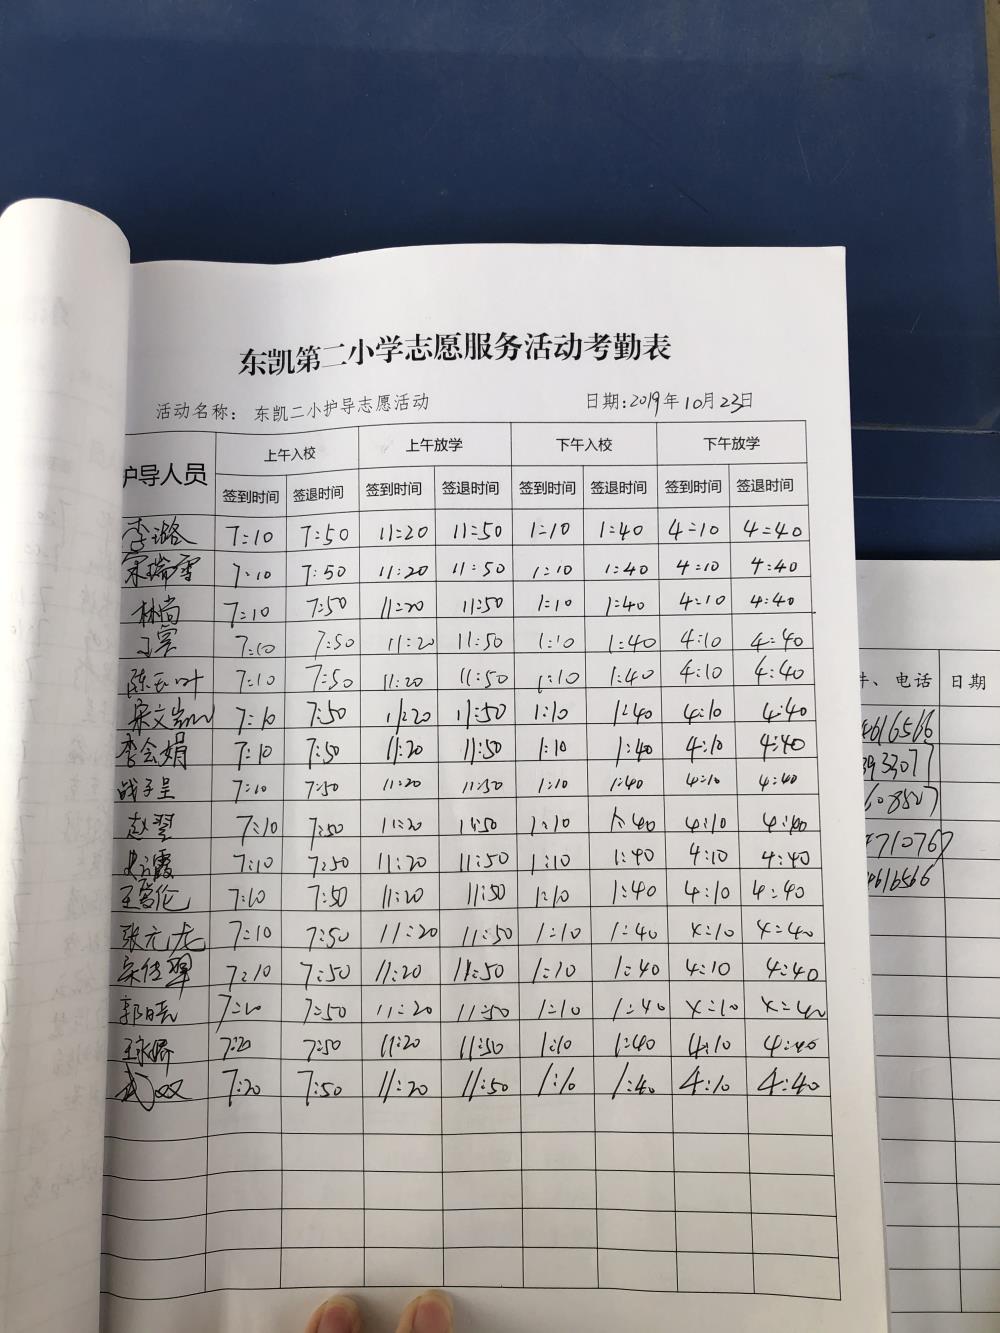 东凯第二小学志愿服务活动考勤表
活动名称： 东凯二小护导志愿活动 日期:2019年10月23日
护导人员 上午入校 上午放学 下午入校 下午放学
签到时间 签退时间 签到时间 签退时间 签到时间 签退时间 签到时间 签退时间
李璐 7:10 7:50 11:20 11:50 1:10 1:40 4:10 4:40
宋瑞雪 7:10 7:50 11:20 11:50 1:10 1:40 4:10 4:40
林尚 7:10 7:50 11:20 11:50 1:10 1:40 4:10 4:40
7:10 7:50 11:20 11:50 1:10 1:40 4:10 4:40
陈玉叶 7:10 7:50 11:20 11:50 1:10 1:40 4:10 4:40
宋文 7:10 7:50 11:20 11:50 1:10 1:40 4:10 4:40
李会娟 7:10 7:50 11:20 11:50 1:10 1:40 4:10 4:40
战子呈 7:10 7:50 11:20 11:50 1:10 1:40 4:10 4:40
赵翠 7:10 7:50 11:20 11:50 1:10 1:40 4:10 4:40
霞 7:10 7:50 11:20 11:50 1:10 1:40 4:10 4:40
王富伦 7:10 7:50 11:20 11:50 1:10 1:40 4:10 4:40
张元龙 7:10 7:50 11:20 11:50 1:10 1:40 4:10 4:40
宋佳翠 7:10 7:50 11:20 11:50 1:10 1:40 4:10 4:40
郭晓 7:20 7:50 11:20 11:50 1:10 1:40 4:10 4:40
王永娇 7:20 7:50 11:20 11:50 1:10 1:40 4:10 4:40
武双 7:20 7:50 11:20 11:50 1:10 1:40 4:10 4:40
、电话 日期
4616566
3933077
608807
4710767
4616566